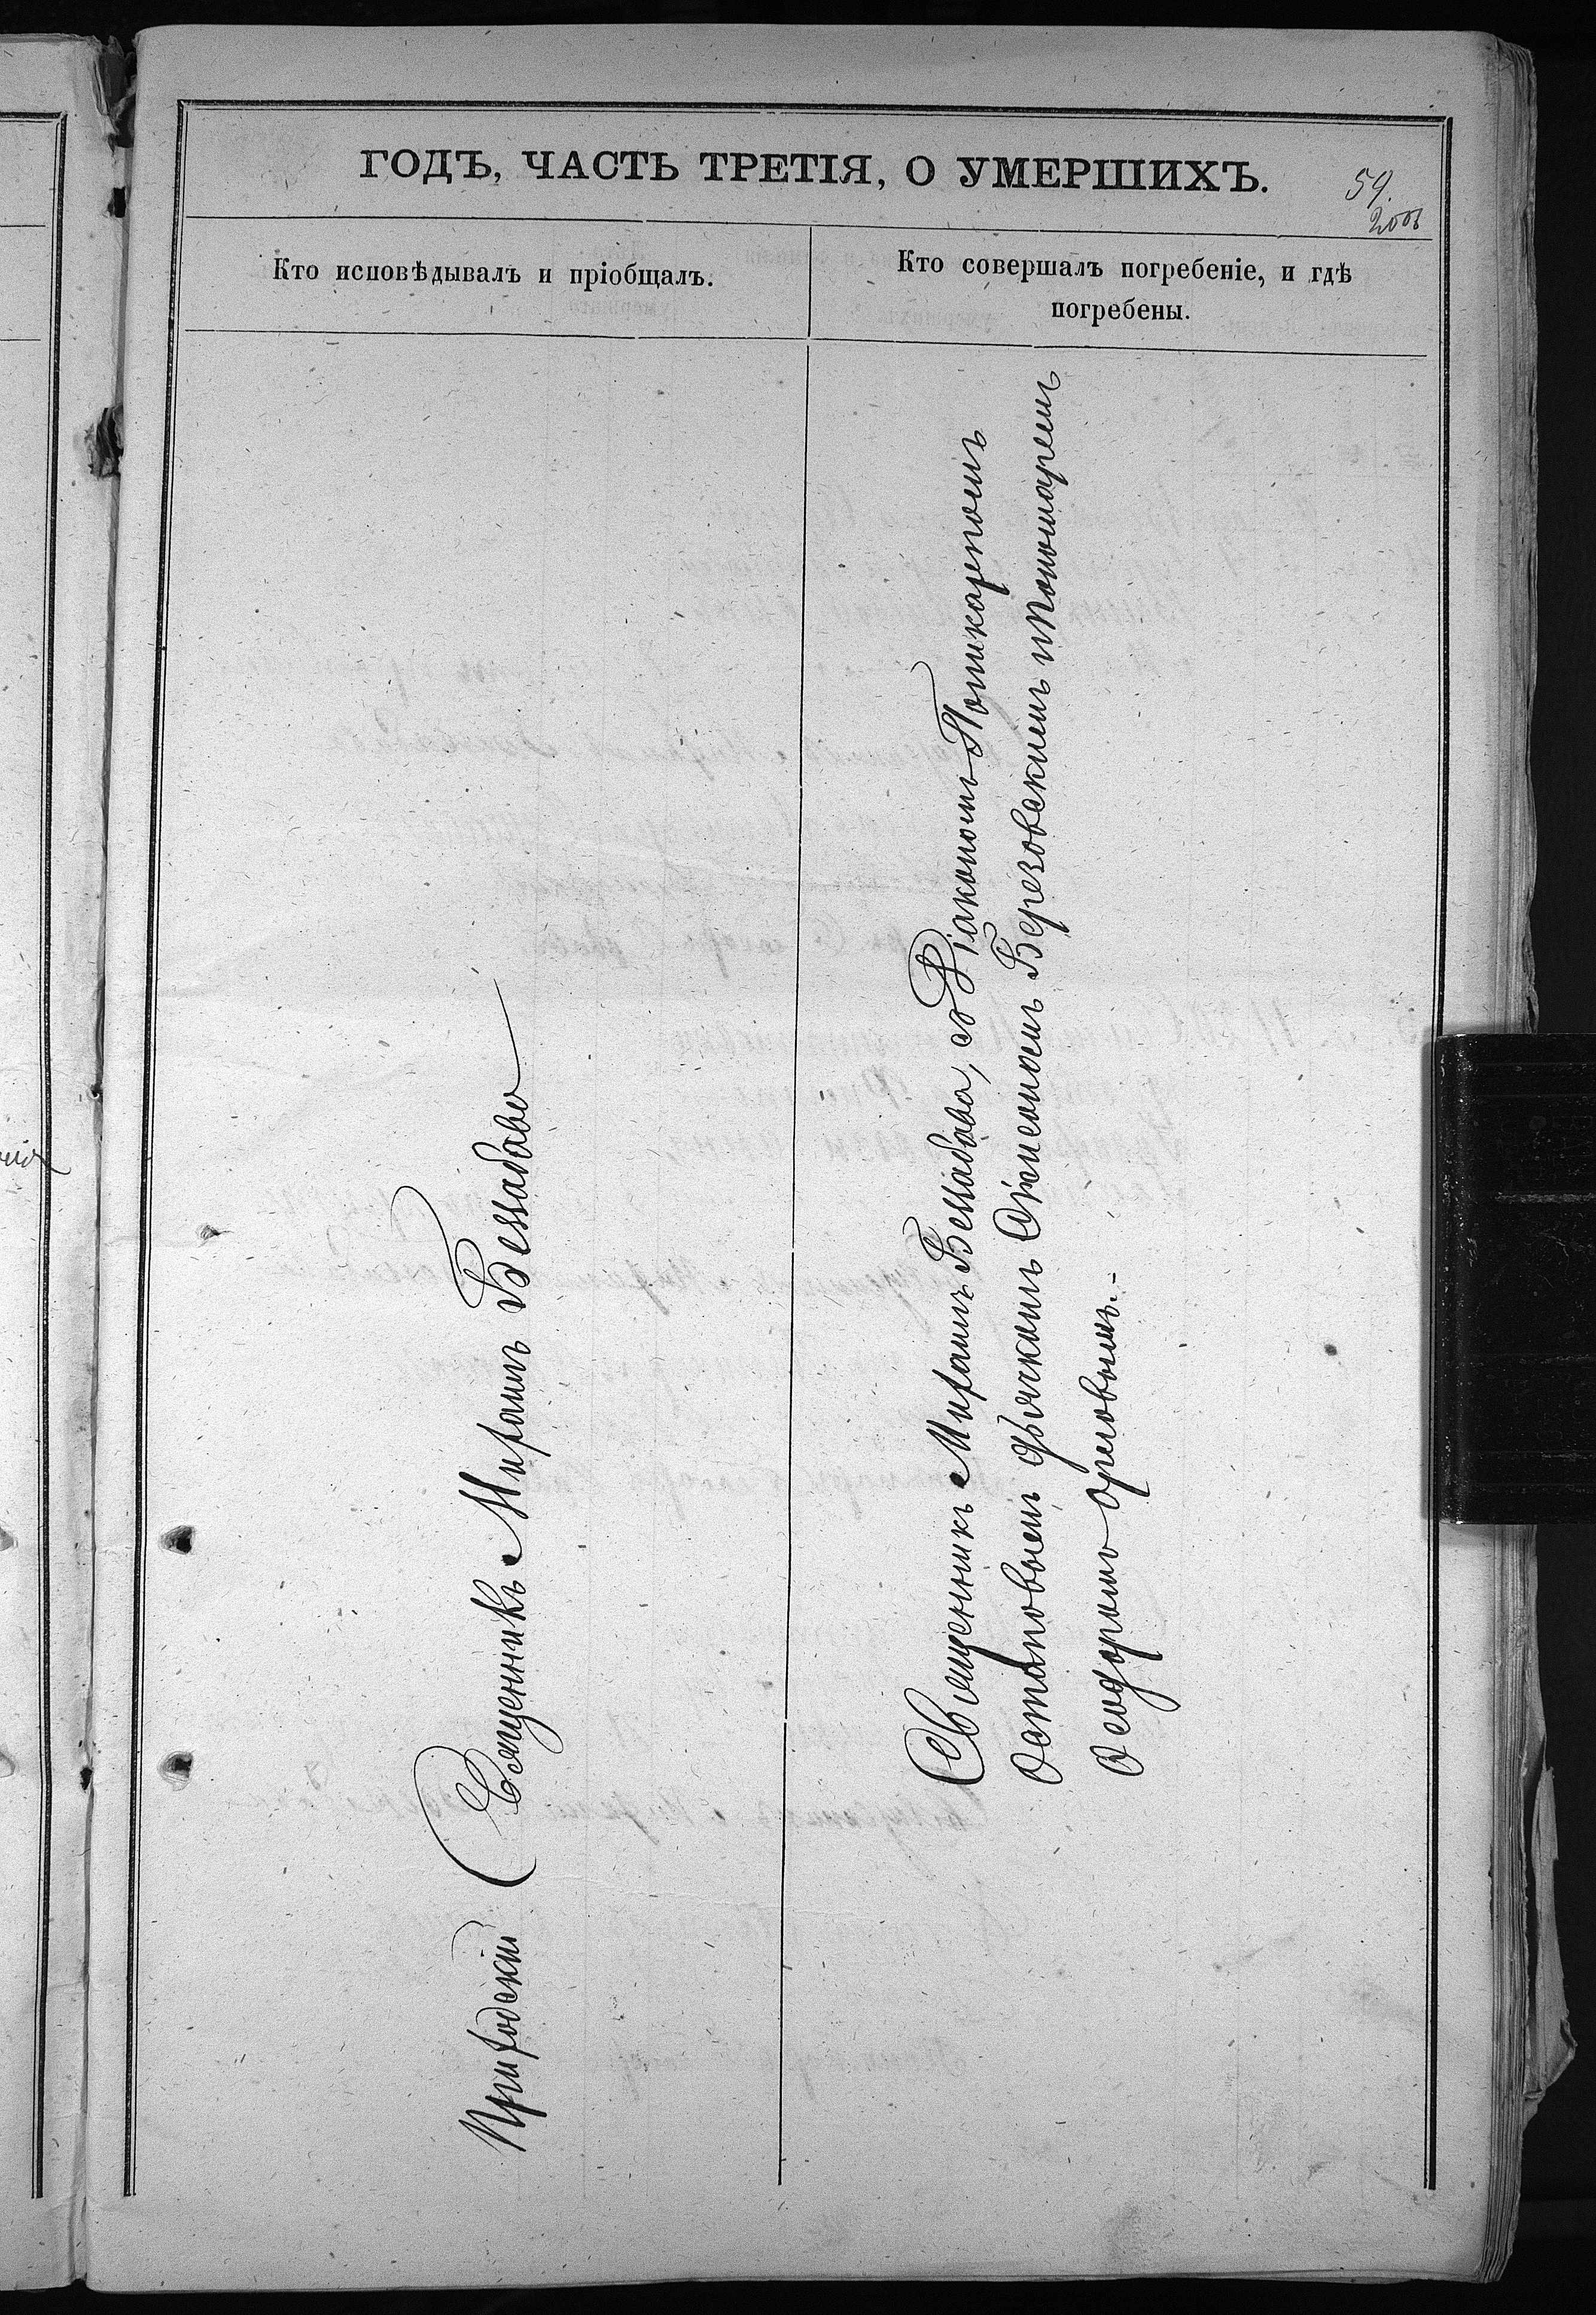 ГОДЪ, ЧАСТЬ ТРЕТІЯ, О УМЕРШИХЪ.
59.
Кто исповѣдывалъ и пріобщалъ.
Кто совершалъ погребеніе, и гдѣ
погребены.
Приходскій Священникъ Михаилъ
Священникъ Михаилъ съ Діакономъ Поликарпомъ
Остаповымъ дьячкомъ Березовскимъ и Пономаремъ
Ѳеодоромъ Орловымъ.-